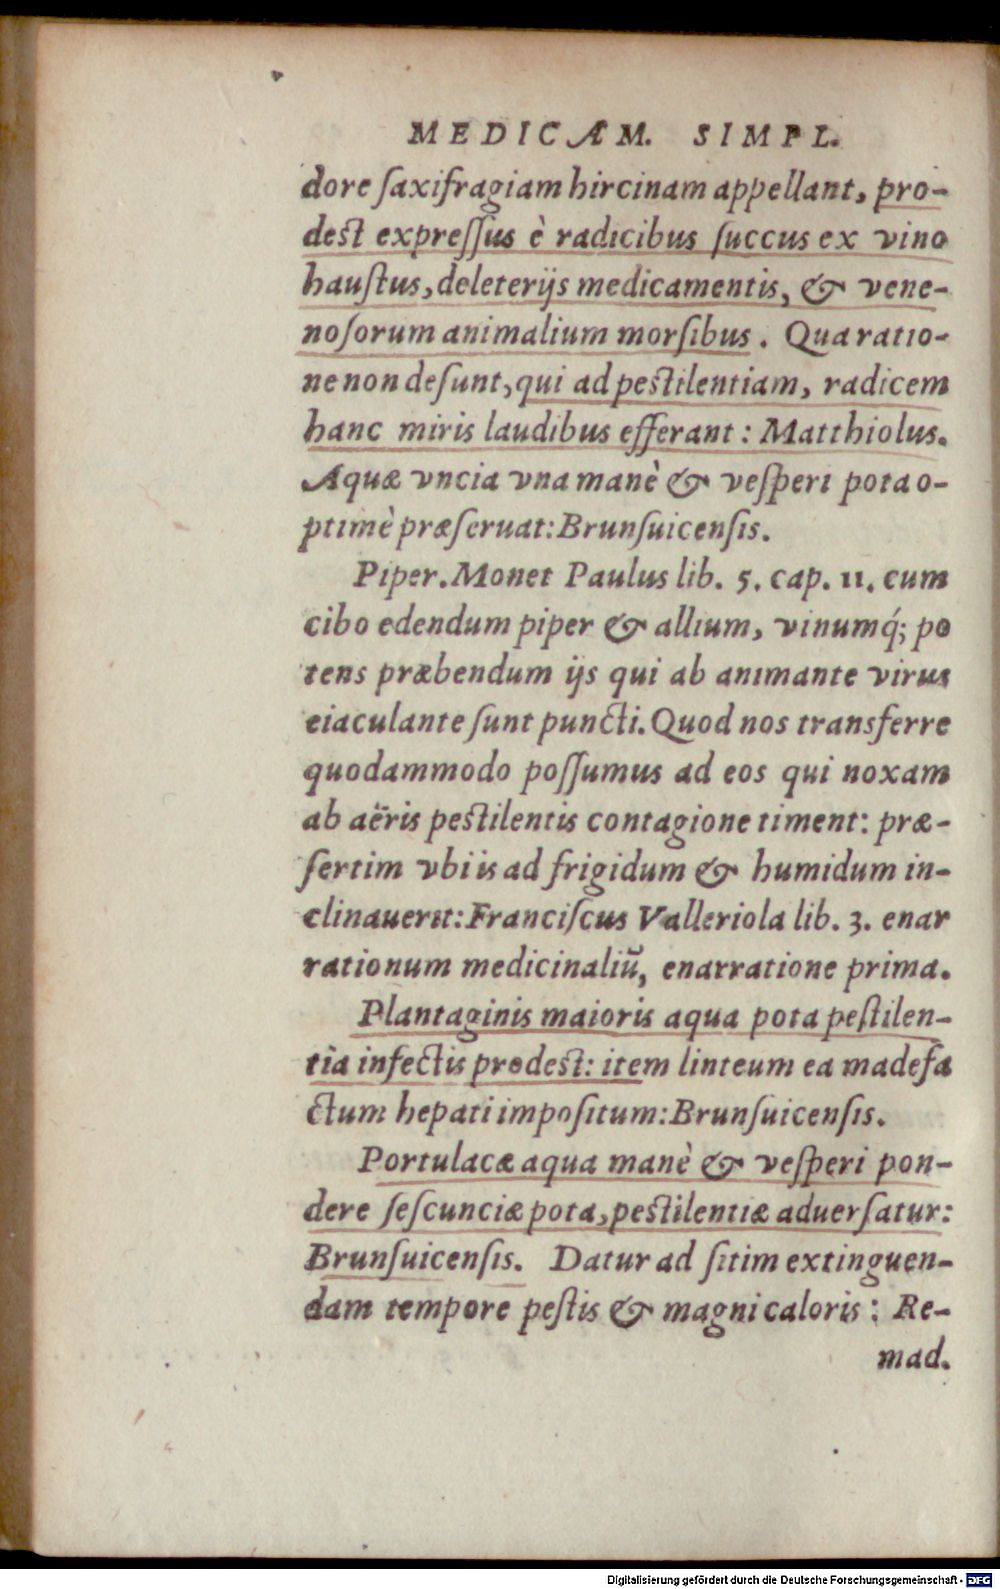 MEDICAM. SIMPL.
dore ſaxifragiam hircinam appellant, pro-
deſt expreſſus è radicibus ſuccus ex vino
hauſtus, deleterijs medicamentis, & vene-
noſorum animalium morſibus. Qua ratio-
ne non deſunt, qui ad peſtilentiam, radicem
hanc miris laudibus efferant: Matthiolus.
Aquæ vncia vna manè & veſperi pota o-
ptimè præſeruat: Brunſuicenſis.
Piper. Monet Paulus lib. 5. cap. 11. cum
cibo edendum piper & allium, vinumq́; po
tens præbendum ijs qui ab animante virus
eiaculante ſunt puncti. Quod nos transferre
quodammodo poſſumus ad eos qui noxam
ab aëris peſtilentis contagione timent: præ-
ſertim vbi is ad frigidum & humidum in-
clinauerit: Franciſcus Valleriola lib. 3. enar
rationum medicinaliũ, enarratione prima.
Plantaginis maioris aqua pota peſtilen-
tia infectis prodeſt: item linteum ea madefa
ctum hepati impoſitum: Brunſuicenſis.
Portulacæ aqua manè & veſperi pon-
dere ſeſcunciæ pota, peſtilentiæ aduerſatur:
Brunſuicenſis. Datur ad ſitim extinguen-
dam tempore peſtis & magni caloris: Re-
mad.
Digitalisierung gefördert durch die Deutsche Forschungsgemeinschaft - DFG